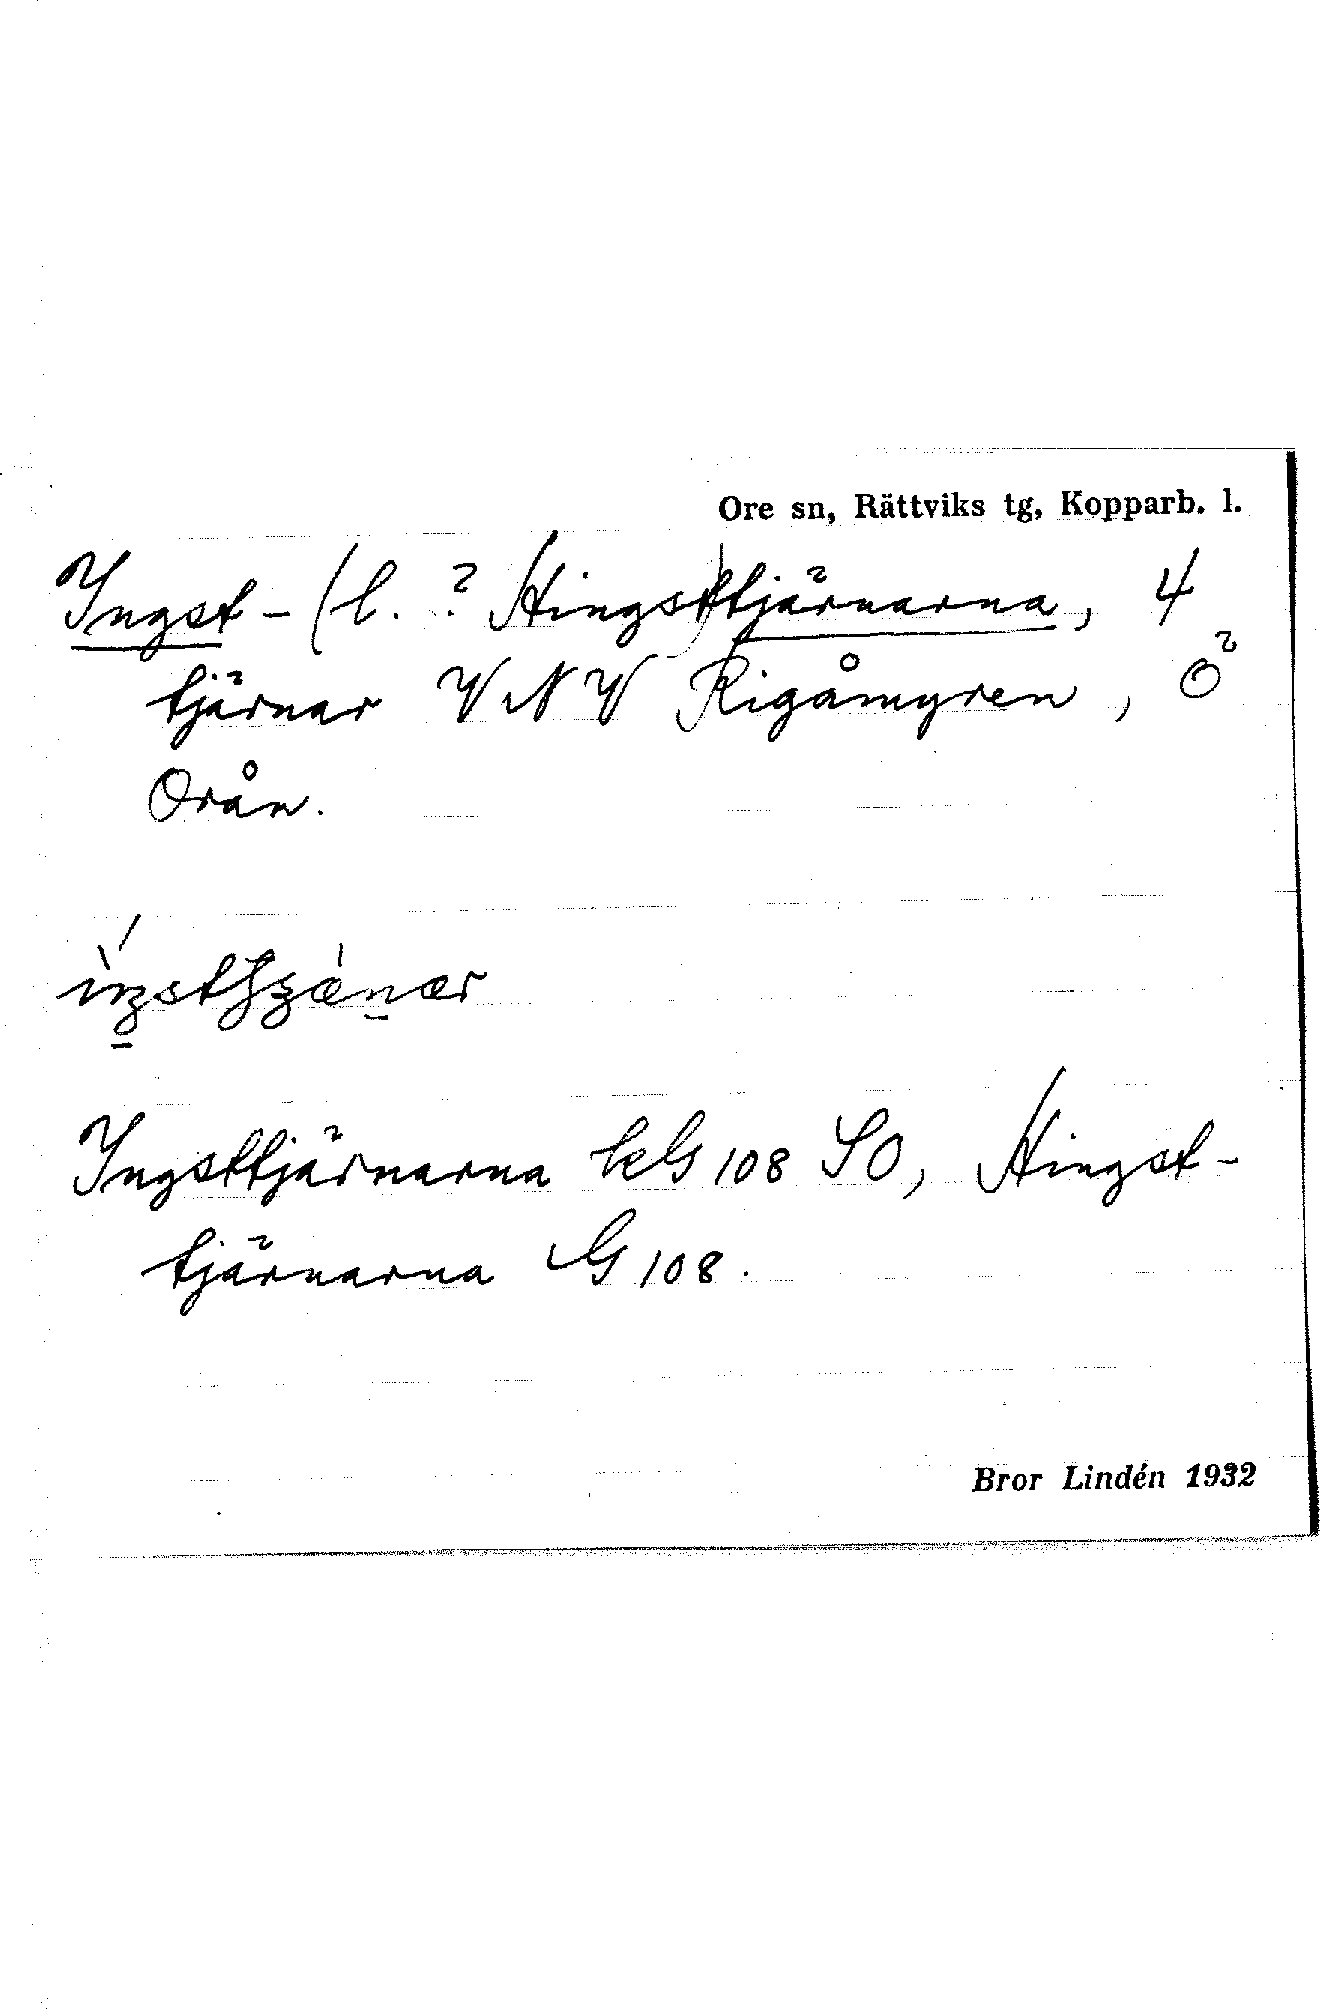 Ore sn, Rättviks tg, Kopparb. l.
Ingst- (l. ? Hingst)tjärnarna, 4
tjärnar VNV Rigåmyren, Ö
Orån.
Ingsttjärnarna 108 SO, Hingst-
tjärnarna G 108.
Bror Lindén 1932